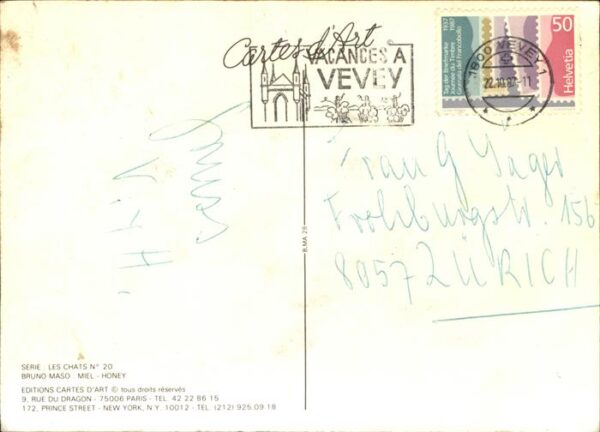 Cartes d'Art
VACANCES À
VEVEY
1937
1987
Tag der Briefmarke
Journée du Timbre
Giornata del Francobollo
50
Helvetia
1800 VEVEY 1
22.10.87-11
Frau G Jager
Frohburgstr. 156
8057 ZÜRICH
B.MA 28
SERIE : LES CHATS N° 20
BRUNO MASO : MIEL - HONEY
EDITIONS CARTES D'ART © tous droits réservés
9, RUE DU DRAGON - 75006 PARIS - TEL 42 22 86 15
172, PRINCE STREET - NEW YORK, N.Y. 10012 - TEL (212) 925.09.18